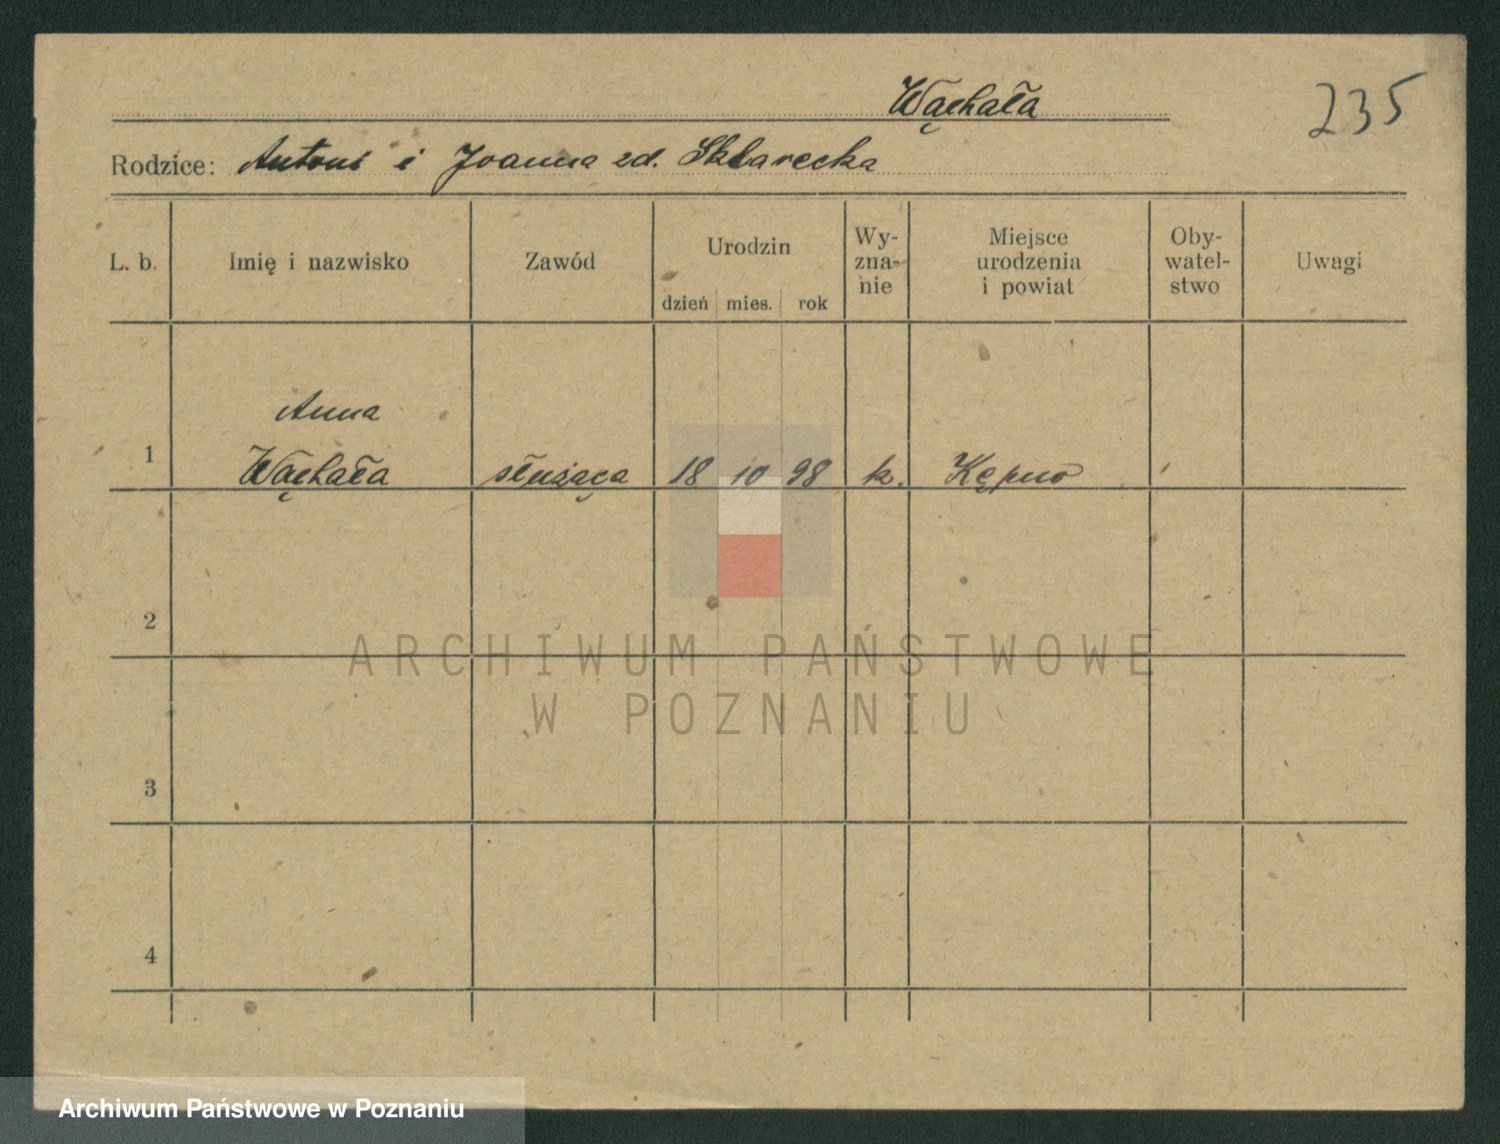 Wąchała
235
Rodzice: Antoni i Joanna zd. Sklarecka
L. b.
Imię i nazwisko
Zawód
Urodzin
dzień mies. rok
Wy-
zna-
nie
Miejsce
urodzenia
i powiat
Oby-
watel-
stwo
Uwagi
1
Anna
Wąchała
służąca
18 10 98
k.
Kępno
2
3
4
ARCHIWUM PAŃSTWOWE
W POZNANIU
Archiwum Państwowe w Poznaniu